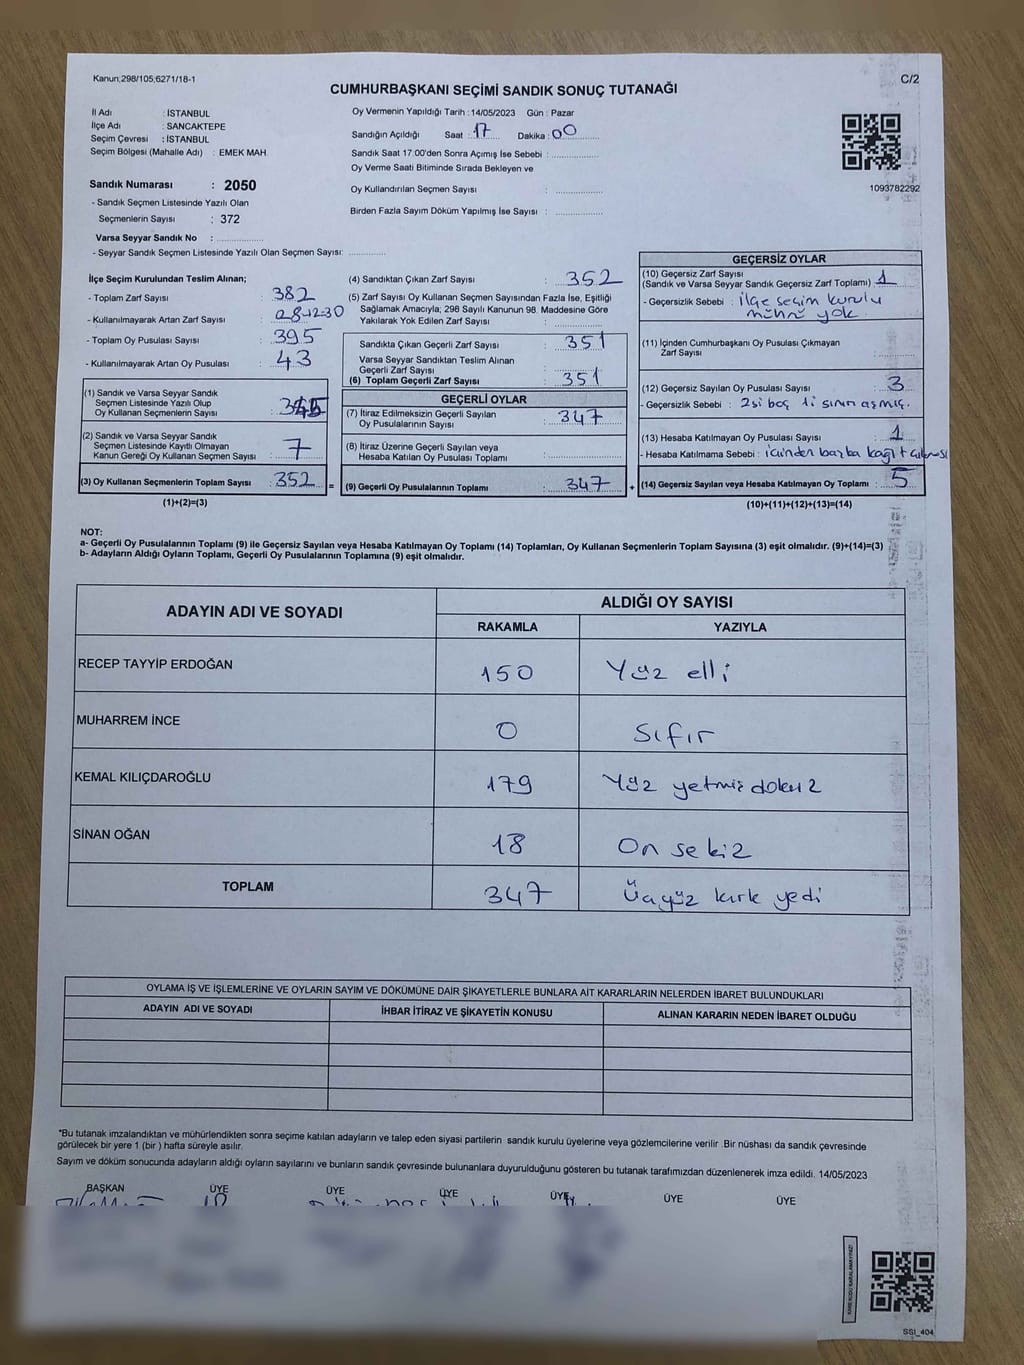 Kanun;298/105,6271/18-1
C/2
CUMHURBAŞKANI SEÇİMİ SANDIK SONUÇ TUTANAĞI
İl Adı : İSTANBUL
İlçe Adı : SANCAKTEPE
Seçim Çevresi : İSTANBUL
Seçim Bölgesi (Mahalle Adı) : EMEK MAH.
Sandık Numarası : 2050
- Sandık Seçmen Listesinde Yazılı Olan
Seçmenlerin Sayısı : 372
Varsa Seyyar Sandık No :
- Seyyar Sandık Seçmen Listesinde Yazılı Olan Seçmen Sayısı:
Oy Vermenin Yapıldığı Tarih :14/05/2023 Gün : Pazar
Sandığın Açıldığı Saat : 17 Dakika : 00
Sandık Saat 17:00'den Sonra Açımış İse Sebebi :
Oy Verme Saati Bitiminde Sırada Bekleyen ve
Oy Kullandırılan Seçmen Sayısı :
Birden Fazla Sayım Döküm Yapılmış İse Sayısı :
1093782292
İlçe Seçim Kurulundan Teslim Alınan;
- Toplam Zarf Sayısı : 382
- Kullanılmayarak Artan Zarf Sayısı : 30
- Toplam Oy Pusulası Sayısı : 395
- Kullanılmayarak Artan Oy Pusulası : 43
(1) Sandık ve Varsa Seyyar Sandık
Seçmen Listesinde Yazılı Olup
Oy Kullanan Seçmenlerin Sayısı : 345
(2) Sandık ve Varsa Seyyar Sandık
Seçmen Listesinde Kayıtlı Olmayan
Kanun Gereği Oy Kullanan Seçmen Sayısı : 7
(3) Oy Kullanan Seçmenlerin Toplam Sayısı : 352 =
(1)+(2)=(3)
(4) Sandıktan Çıkan Zarf Sayısı : 352
(5) Zarf Sayısı Oy Kullanan Seçmen Sayısından Fazla İse, Eşitliği
Sağlamak Amacıyla; 298 Sayılı Kanunun 98. Maddesine Göre
Yakılarak Yok Edilen Zarf Sayısı :
Sandıkta Çıkan Geçerli Zarf Sayısı : 351
Varsa Seyyar Sandıktan Teslim Alınan
Geçerli Zarf Sayısı :
(6) Toplam Geçerli Zarf Sayısı : 351
GEÇERLİ OYLAR
(7) İtiraz Edilmeksizin Geçerli Sayılan
Oy Pusulasının Sayısı : 347
(8) İtiraz Üzerine Geçerli Sayılan veya
Hesaba Katılan Oy Pusulası Toplamı :
(9) Geçerli Oy Pusulalarının Toplamı : 347 +
GEÇERSİZ OYLAR
(10) Geçersiz Zarf Sayısı
(Sandık ve Varsa Seyyar Sandık Geçersiz Zarf Toplamı) : 1
- Geçersizlik Sebebi : ilçe seçim kurulu
mührü yok
(11) İçinden Cumhurbaşkanı Oy Pusulası Çıkmayan
Zarf Sayısı :
(12) Geçersiz Sayılan Oy Pusulası Sayısı : 3
- Geçersizlik Sebebi : 2si boş 1i sınırı aşmış.
(13) Hesaba Katılmayan Oy Pusulası Sayısı : 1
- Hesaba Katılmama Sebebi : içinden başka kağıt çıkması
(14) Geçersiz Sayılan veya Hesaba Katılmayan Oy Toplamı : 5
(10)+(11)+(12)+(13)=(14)
NOT:
a- Geçerli Oy Pusulalarının Toplamı (9) ile Geçersiz Sayılan veya Hesaba Katılmayan Oy Toplamı (14) Toplamları, Oy Kullanan Seçmenlerin Toplam Sayısına (3) eşit olmalıdır. (9)+(14)=(3)
b- Adayların Aldığı Oyların Toplamı, Geçerli Oy Pusulalarının Toplamına (9) eşit olmalıdır.
ADAYIN ADI VE SOYADI
ALDIĞI OY SAYISI
RAKAMLA YAZIYLA
RECEP TAYYİP ERDOĞAN 150 Yüz elli
MUHARREM İNCE 0 Sıfır
KEMAL KILIÇDAROĞLU 179 Yüz yetmiş dokuz
SİNAN OĞAN 18 On sekiz
TOPLAM 347 Üçyüz kırk yedi
OYLAMA İŞ VE İŞLEMLERİNE VE OYLARIN SAYIM VE DÖKÜMÜNE DAİR ŞİKAYETLERLE BUNLARA AİT KARARLARIN NELERDEN İBARET BULUNDUKLARI
ADAYIN ADI VE SOYADI İHBAR İTİRAZ VE ŞİKAYETİN KONUSU ALINAN KARARIN NEDEN İBARET OLDUĞU
*Bu tutanak imzalandıktan ve mühürlendikten sonra seçime katılan adayların ve talep eden siyasi partilerin sandık kurulu üyelerine veya gözlemcilerine verilir .Bir nüshası da sandık çevresinde
görülecek bir yere 1 (bir ) hafta süreyle asılır.
Sayım ve döküm sonucunda adayların aldığı oyların sayılarını ve bunların sandık çevresinde bulunanlara duyurulduğunu gösteren bu tutanak tarafımızdan düzenlenerek imza edildi. 14/05/2023
BAŞKAN ÜYE ÜYE ÜYE ÜYE ÜYE ÜYE
KAREKODU KARALAMAYINIZ!
SSI_404